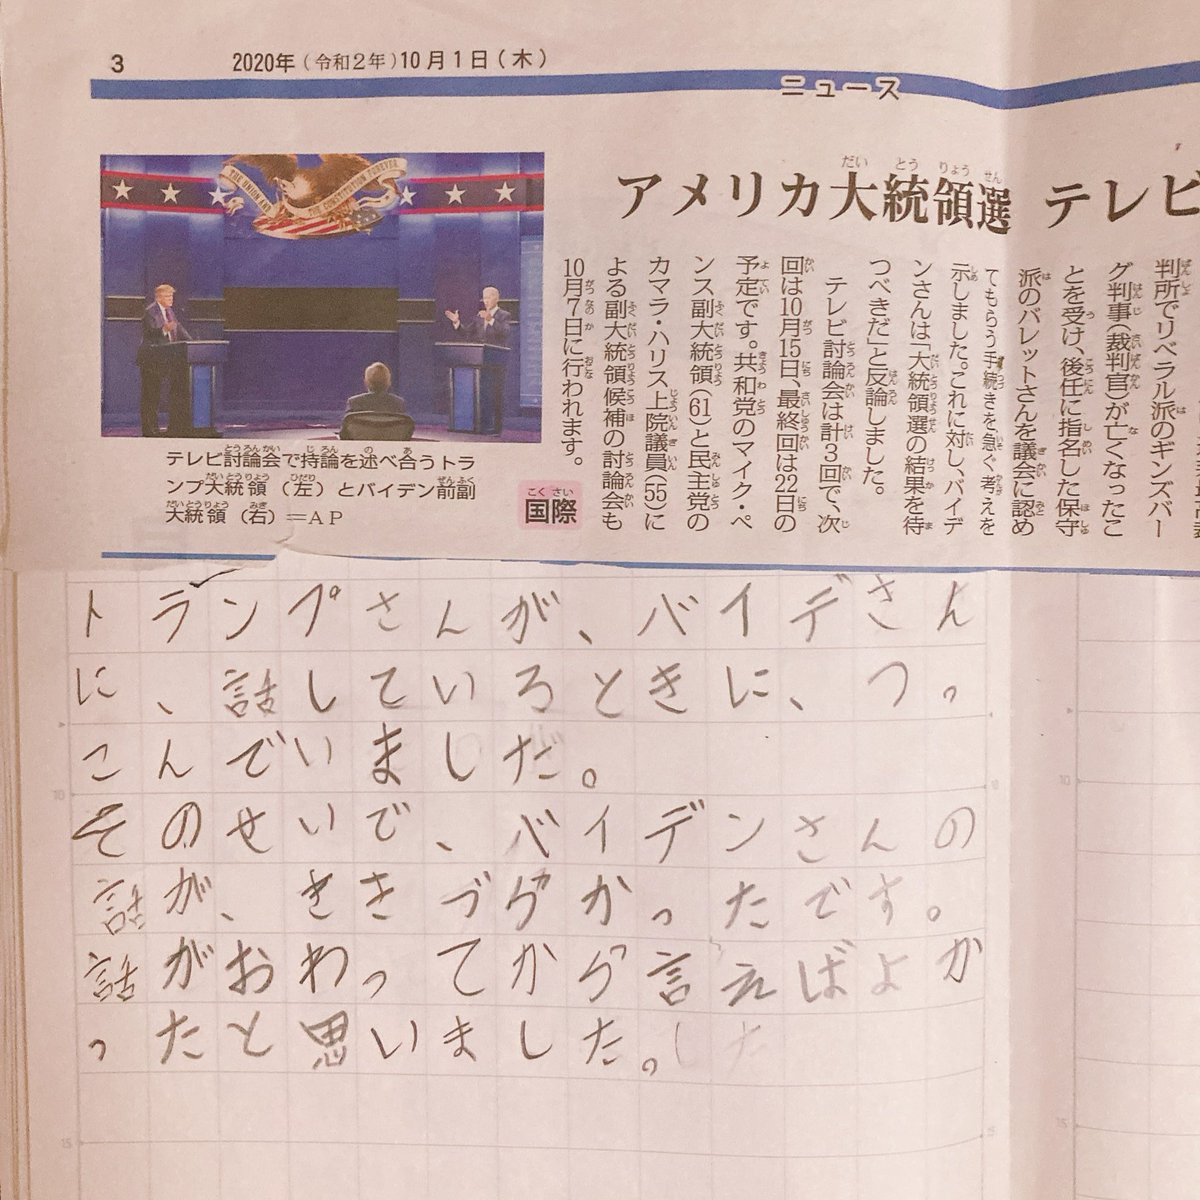 3
2020年(令和2年)10月1日(木)
ニュース
だい とう りょう せん
アメリカ大統領選 テレビ
判所でリベラル派のギンズバー
グ判事(裁判官)が亡くなったこ
とを受け、後任に指名した保守
派のバレットさんを議会に認め
てもらう手続きを急ぐ考えを
示しました。これに対し、バイデ
ンさんは「大統領選の結果を待
つべきだ」と反論しました。
テレビ討論会は計3回で、次
回は10月15日、最終回は22日の
予定です。共和党のマイク・ペ
ンス副大統領(61)と民主党の
カマラ・ハリス上院議員(55)に
よる副大統領候補の討論会も
10月7日に行われます。
THE UNION AND THE CONSTITUTION FOREVER
テレビ討論会で持論を述べ合うトラ
ンプ大統領(左)とバイデン前副
大統領(右)=AP
こく さい
国際
トランプさんが、バイデさん
に、話しているときに、つっ
こんでいました。
そのせいで、バイデンさんの
話が、ききづらかったです。
話がおわってから言えばよか
ったと思いました。